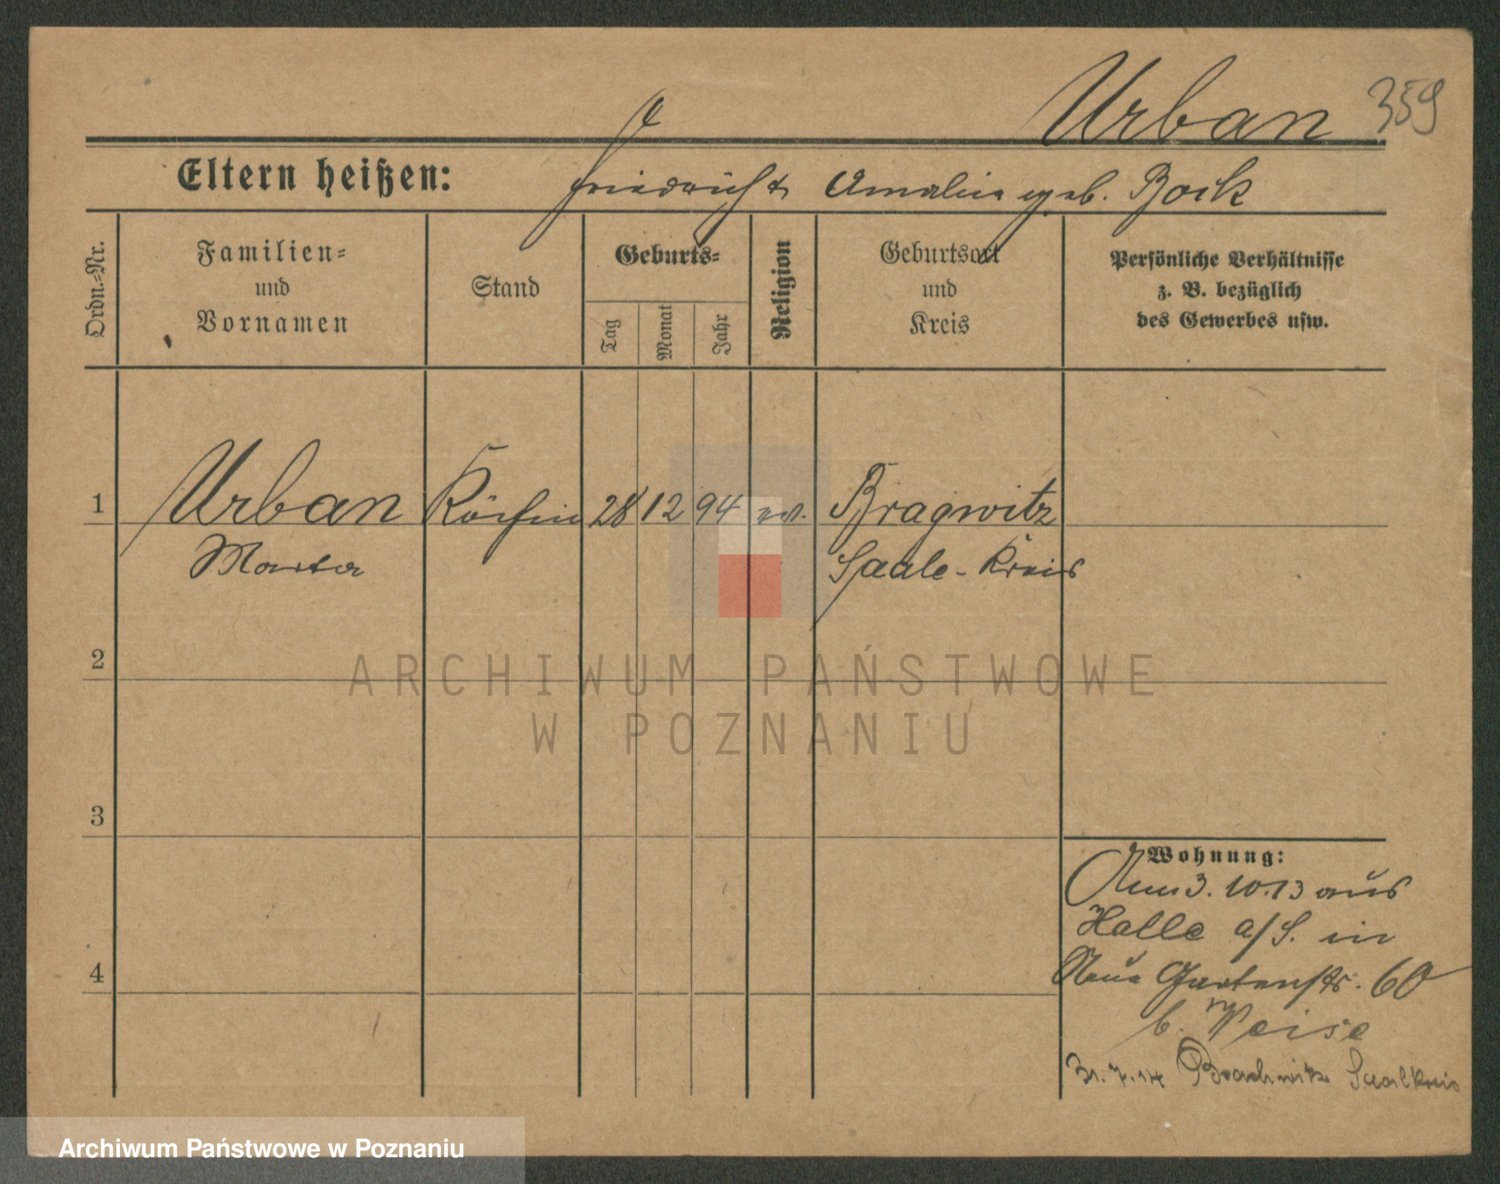 Urban 359
Eltern heißen: Friedrich & Amalie geb. Bock
Ordn.-Nr.
Familien- und Vornamen
Stand
Geburts-
Tag
Monat
Jahr
Religion
Geburtsort und Kreis
Persönliche Verhältnisse z. B. bezüglich des Gewerbes usw.
1 Urban Köchin 28 12 94 ev. Bragwitz
Marta Saale-Kreis
2
3
4
Wohnung:
3.10.13 aus
Halle a/S. in
Neue Gartenstr. 60
b. Weise
31.7.14 Brachwitz Saalkreis
ARCHIWUM PAŃSTWOWE
W POZNANIU
Archiwum Państwowe w Poznaniu